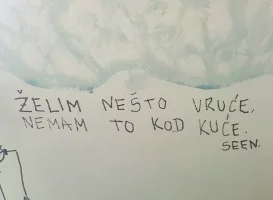 ŽELIM NEŠTO VRUĆE,
NEMAM TO KOD KUĆE.
SEEN.